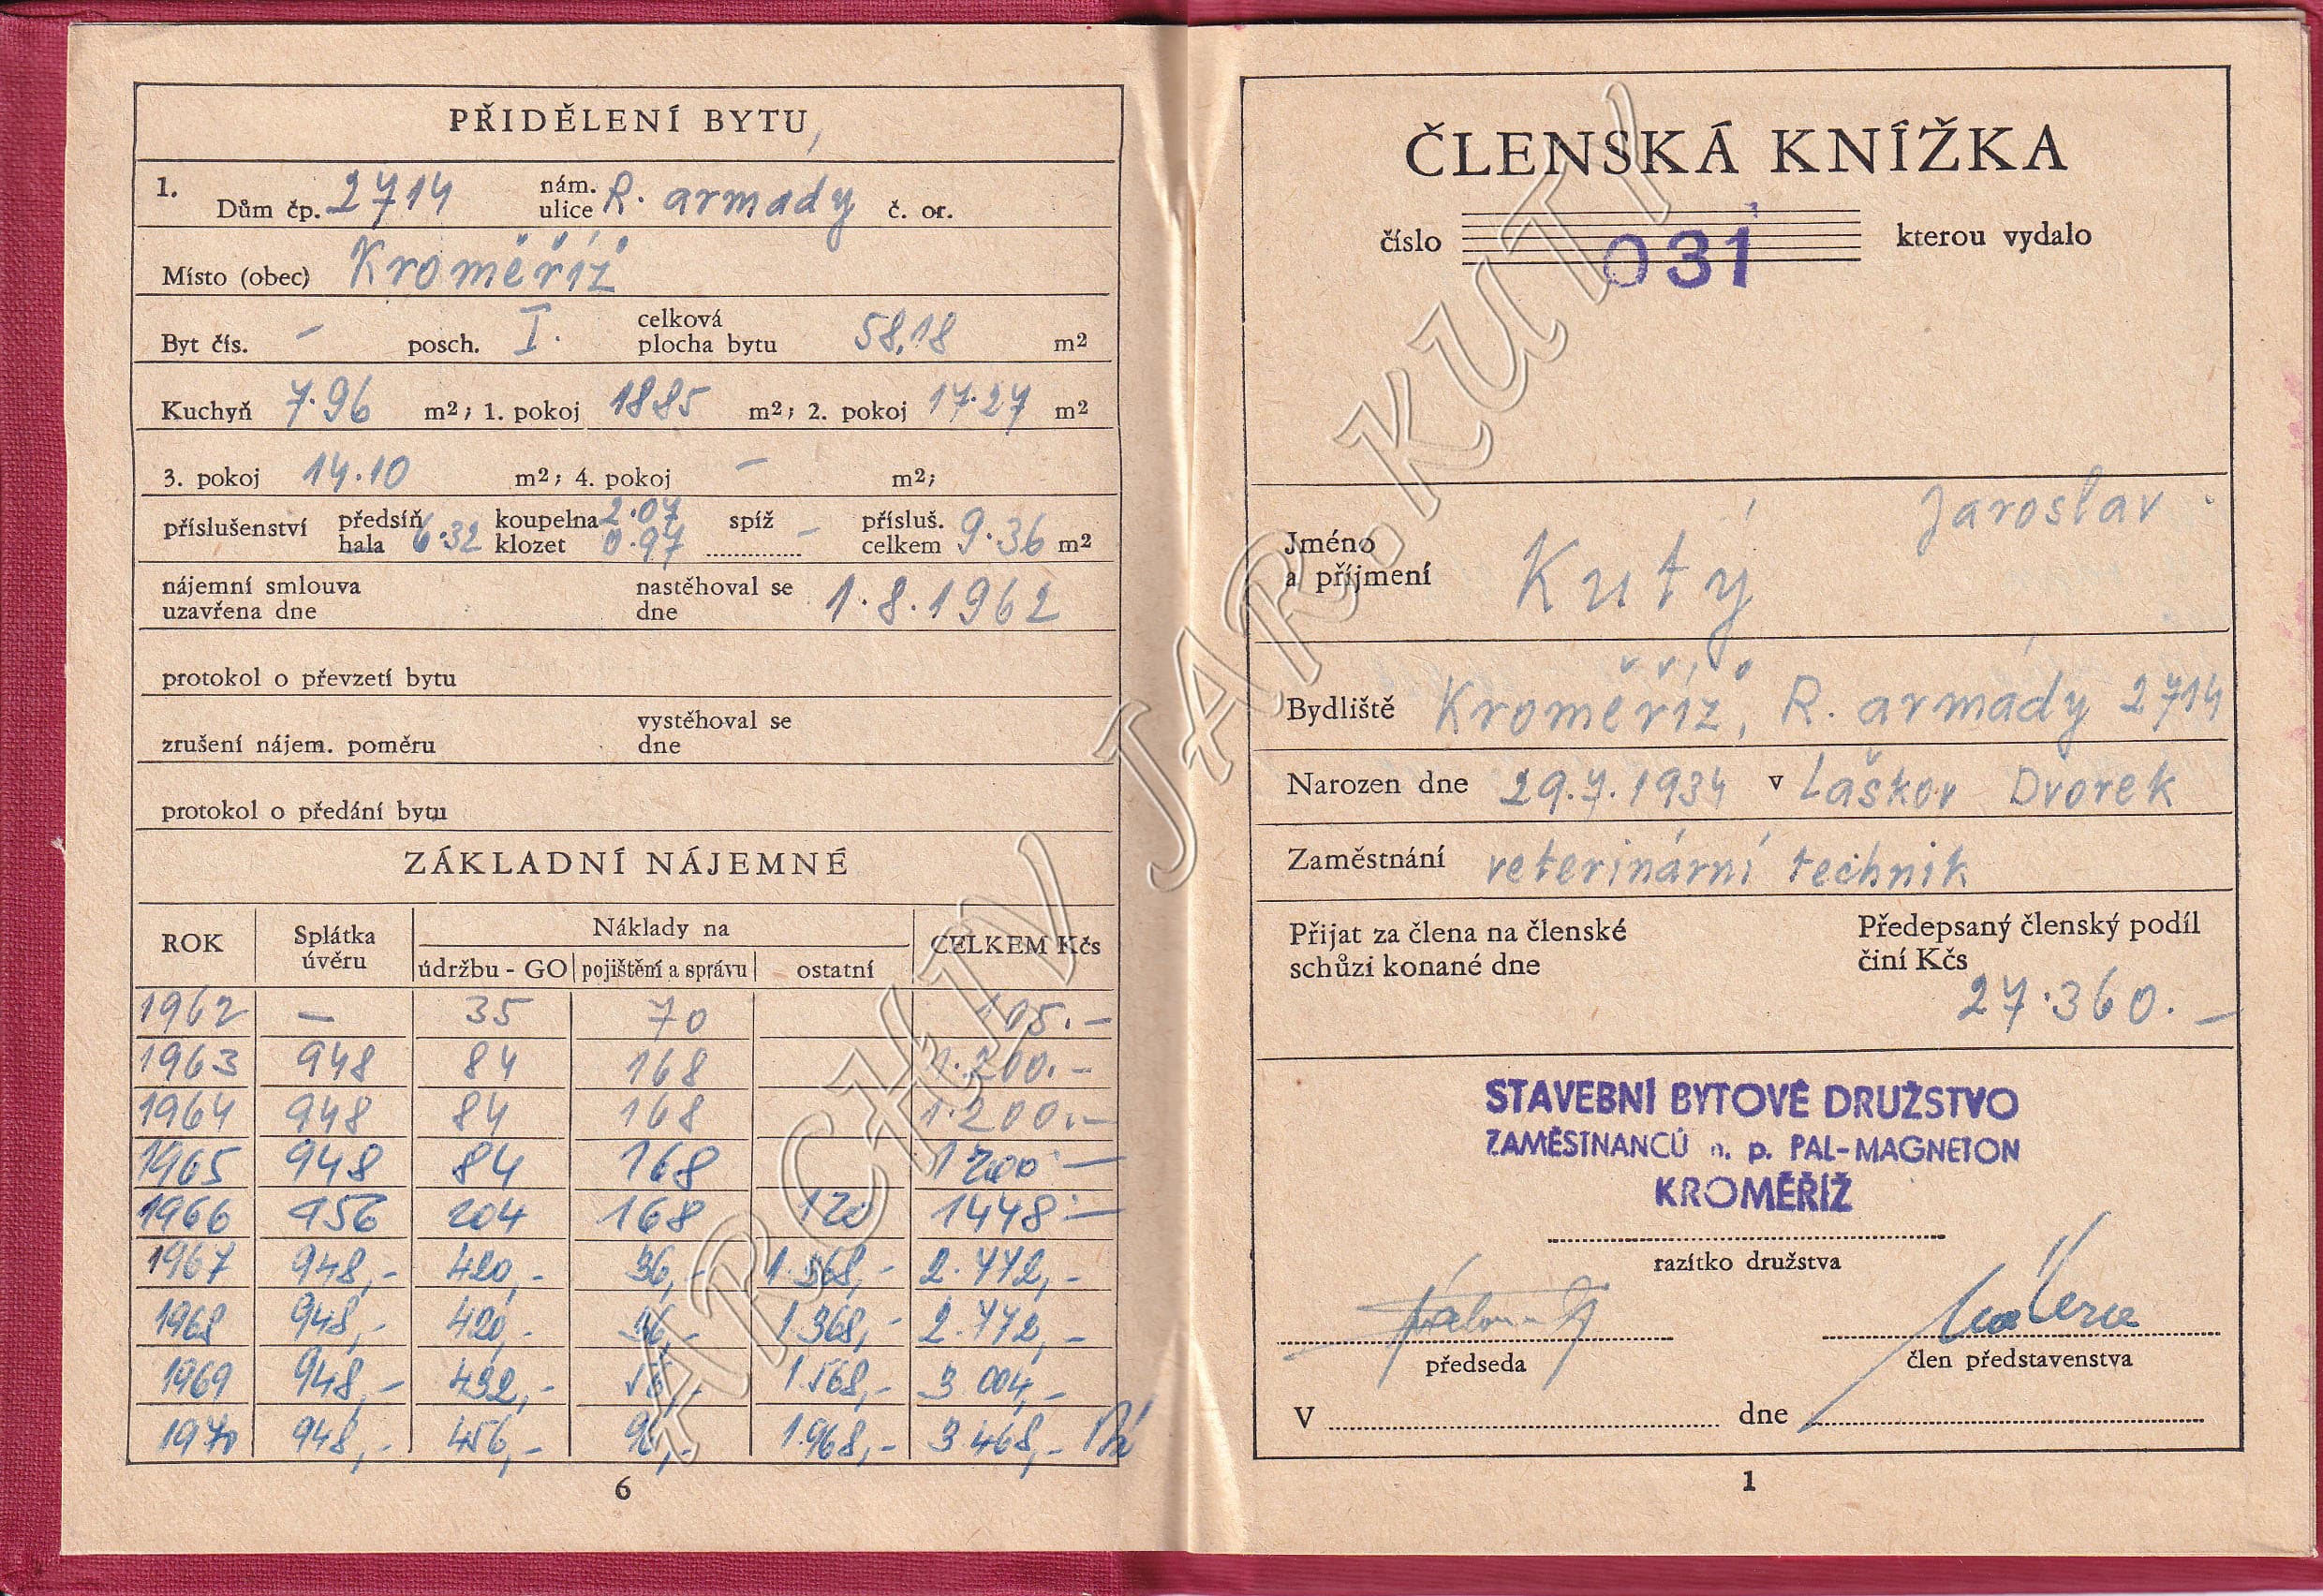 PŘIDĚLENÍ BYTU
1. Dům čp. 2714 nám. ulice R. armády č. or.
Místo (obec) Kroměříž
Byt čís. – posch. I. celková plocha bytu 58,18 m2
Kuchyň 7.96 m2; 1. pokoj 1885 m2; 2. pokoj 17.27 m2
3. pokoj 14.10 m2; 4. pokoj – m2;
příslušenství předsíň hala 6.32 koupelna 2.07 klozet 0.97 spíž – přísluš. celkem 9.36 m2
nájemní smlouva uzavřena dne nastěhoval se dne 1.8.1962
protokol o převzetí bytu
zrušení nájem. poměru vystěhoval se dne
protokol o předání bytu
ZÁKLADNÍ NÁJEMNÉ
ROK Splátka úvěru Náklady na CELKEM Kčs
údržbu - GO pojištění a správu ostatní
1962 – 35 70 105.–
1963 948 84 168 1.200.–
1964 948 84 168 1.200.–
1965 948 84 168 1200:–
1966 956 204 168 120 1448:–
1967 948,- 420,- 36,- 1.368,- 2.772,-
1968 948,- 420,- 36,- 1.368,- 2.772,-
1969 948,- 432,- 56,- 1.568,- 3 004,-
1970 948,- 456,- 96,- 1.968,- 3.468,-
6
ČLENSKÁ KNÍŽKA
číslo 031 kterou vydalo
Jméno a příjmení Kutý Jaroslav
Bydliště Kroměříž, R. armády 2714
Narozen dne 29.7.1934 v Laškov Dvorek
Zaměstnání veterinární technik
Přijat za člena na členské schůzi konané dne
Předepsaný členský podíl činí Kčs
27.360.–
STAVEBNÍ BYTOVÉ DRUŽSTVO
ZAMĚSTNANCŮ n. p. PAL-MAGNETON
KROMĚŘÍŽ
razítko družstva
předseda
člen představenstva
V dne
1
ARCHIV JAR.KUTÝ